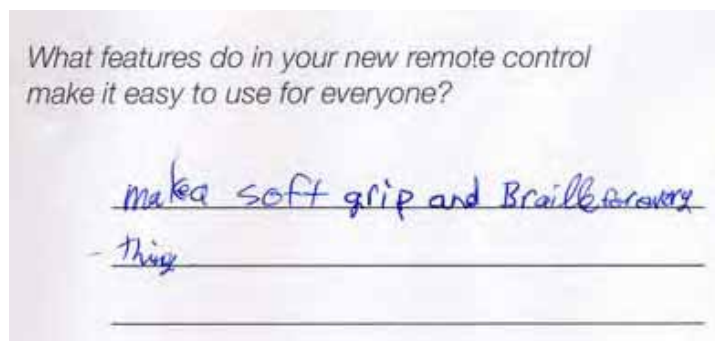 What features do in your new remote control
make it easy to use for everyone?
make a soft grip and Braille for every
thing